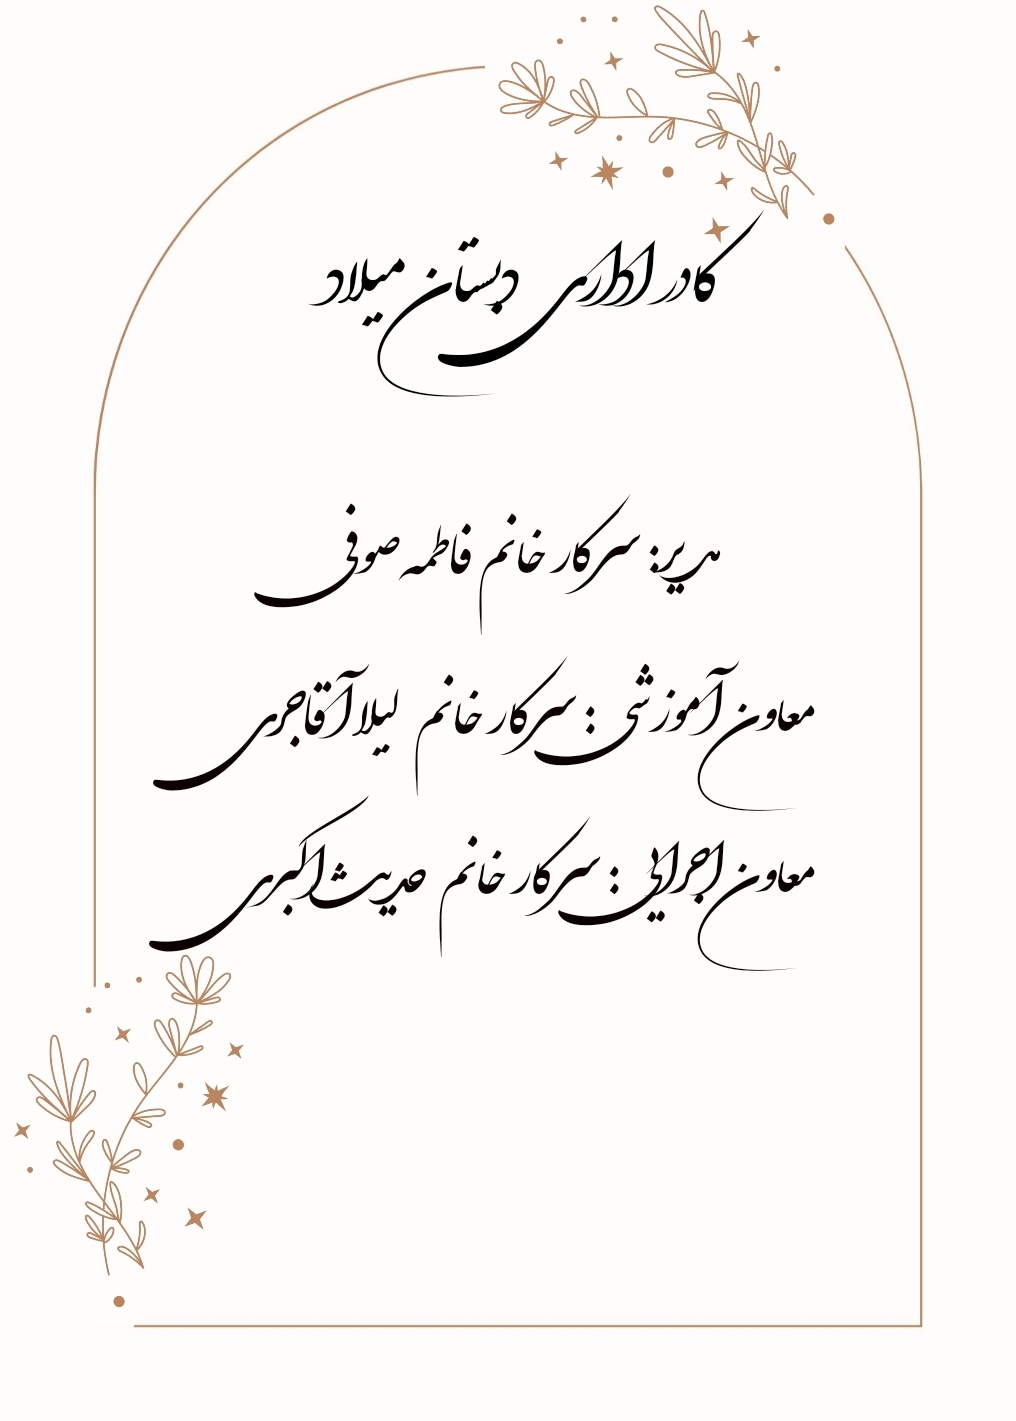 کادر اداری دبستان میلاد
مدیر: سرکار خانم فاطمه صوفی
معاون آموزشی : سرکار خانم لیلا آقاجری
معاون اجرایی : سرکار خانم حدیث اکبری